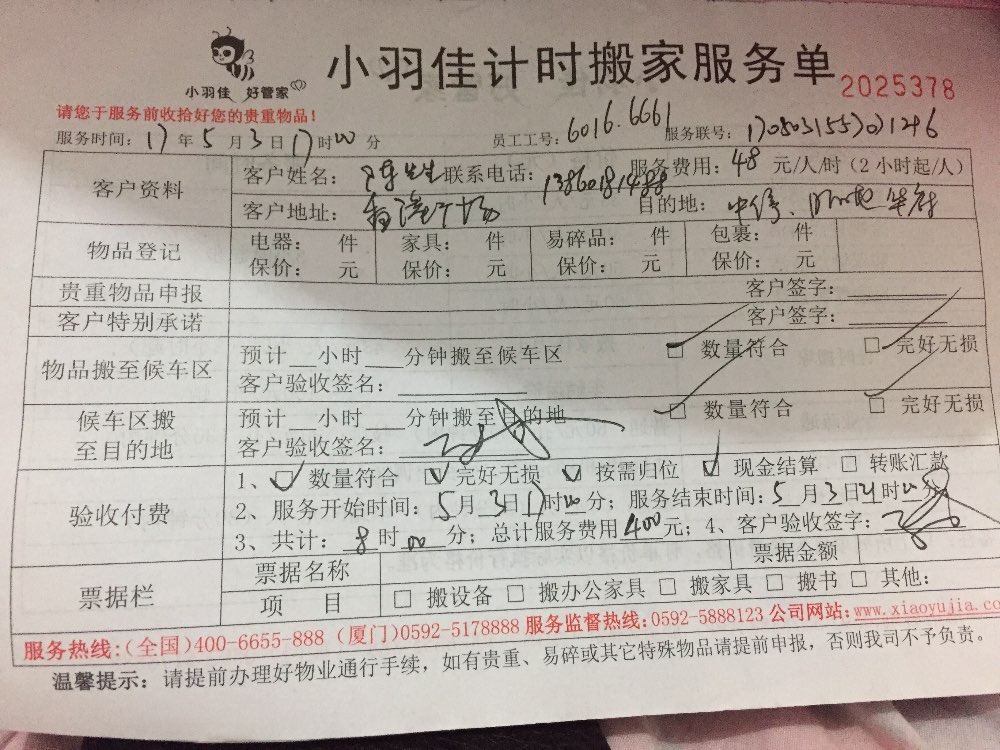 小羽佳 好管家
小羽佳计时搬家服务单
2025378
请您于服务前收拾好您的贵重物品!
服务时间: 17 年 5 月 3 日 17 时 00 分 员工工号: 6016.6661 服务联号: 170503155701246
客户资料 客户姓名: 陈先生 联系电话: 服务费用: 48 元/人/时 (2 小时起/人)
客户地址: 目的地: 中信、
物品登记 电器: 件 家具: 件 易碎品: 件 包裹: 件
保价: 元 保价: 元 保价: 元 保价: 元
贵重物品申报 客户签字:
客户特别承诺 客户签字:
物品搬至候车区 预计___小时___分钟搬至候车区 □ 数量符合 □ 完好无损
客户验收签名:
候车区搬至目的地 预计___小时___分钟搬至目的地 □ 数量符合 □ 完好无损
客户验收签名:
验收付费 1、☑ 数量符合 ☑ 完好无损 ☑ 按需归位 ☑ 现金结算 □ 转账汇款
2、服务开始时间: 5 月 3 日 17 时 00 分; 服务结束时间: 5 月 3 日 21 时 00 分
3、共计: 8 时 00 分; 总计服务费用 400 元; 4、客户验收签字:
票据栏 票据名称 票据金额
项 目 □ 搬设备 □ 搬办公家具 □ 搬家具 □ 搬书 □ 其他:
服务热线:(全国)400-6655-888 (厦门)0592-5178888 服务监督热线:0592-5888123 公司网站:www.xiaoyujia.co
温馨提示: 请提前办理好物业通行手续, 如有贵重、易碎或其它特殊物品请提前申报, 否则我司不予负责。